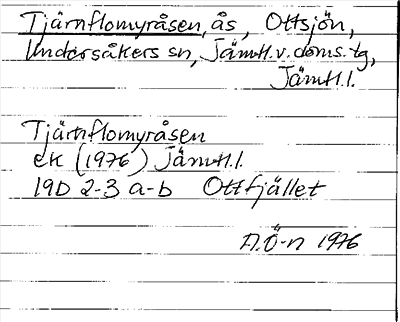 Tjärnflomyråsen, ås, Ottsjön,
Undersåkers sn, Jämtl. v. doms. tg,
Jämtl. l.
Tjärnflomyråsen
ek (1976) Jämtl. l.
19D 2-3 a-b Ottfjället
A.Ö-n 1976